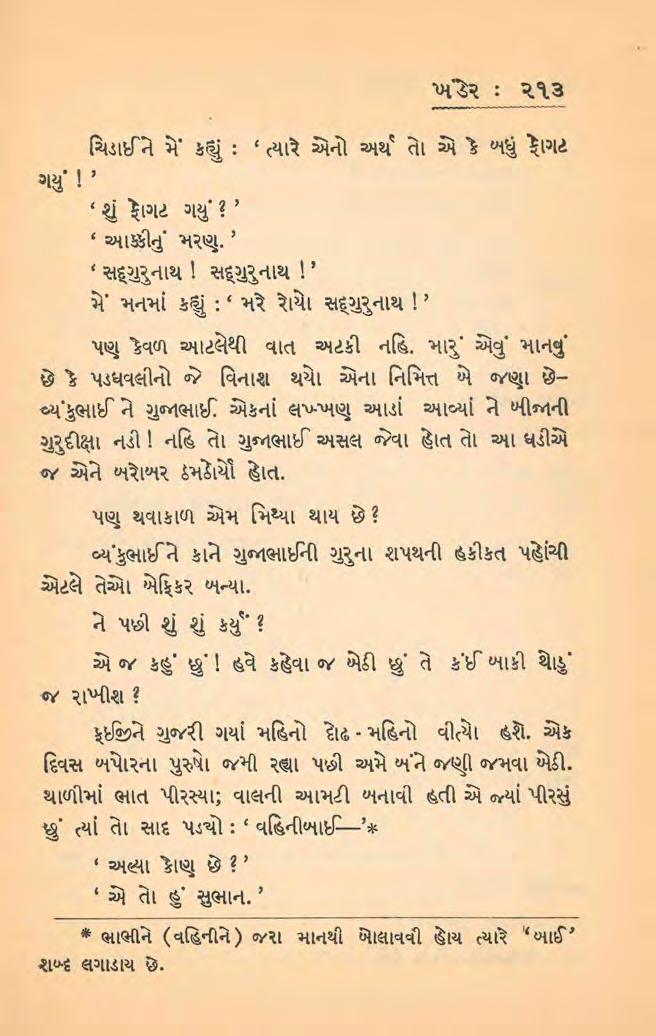 ખંડેર : ૨૧૩
ચિડાઈને મેં કહ્યું : ‘ ત્યારે એનો અર્થ તો એ કે બધું ફોગટ
ગયું ! ’
‘ શું ફોગટ ગયું ? ’
‘ આક્કીનું મરણ. ’
‘ સદ્ગુરુનાથ ! સદ્ગુરુનાથ ! ’
મેં મનમાં કહ્યું : ‘ મરે રોયો સદ્ગુરુનાથ ! ’
પણ કેવળ આટલેથી વાત અટકી નહિ. મારું એવું માનવું
છે કે પડઘવલીનો જે વિનાશ થયો એના નિમિત્ત બે જણા છે–
વ્યંકુભાઈ ને ગુજાભાઈ. એકનાં લખ્ખણ આડાં આવ્યાં ને બીજાની
ગુરુદીક્ષા નડી ! નહિ તો ગુજાભાઈ અસલ જેવા હોત તો આ ઘડીએ
જ એને બરોબર ઠમઠોર્યો હોત.
પણ થવાકાળ એમ મિથ્યા થાય છે ?
વ્યંકુભાઈને કાને ગુજાભાઈની ગુરુના શપથની હકીકત પહોંચી
એટલે તેઓ બેફિકર બન્યા.
ને પછી શું શું કર્યું ?
એ જ કહું છું ! હવે કહેવા જ બેઠી છું તે કંઈ બાકી થોડું
જ રાખીશ ?
ફઈજીને ગુજરી ગયાં મહિનો દોઢ - મહિનો વીત્યો હશે. એક
દિવસ બપોરના પુરુષો જમી રહ્યા પછી અમે બંને જણી જમવા બેઠી.
થાળીમાં ભાત પીરસ્યા; વાલની આમટી બનાવી હતી એ જ્યાં પીરસું
છું ત્યાં તો સાદ પડ્યો : ‘ વહિનીબાઈ—’*
‘ અલ્યા કોણ છે ? ’
‘ એ તો હું સુભાન. ’
* ભાભીને (વહિનીને) જરા માનથી બોલાવવી હોય ત્યારે ‘બાઈ’
શબ્દ લગાડાય છે.